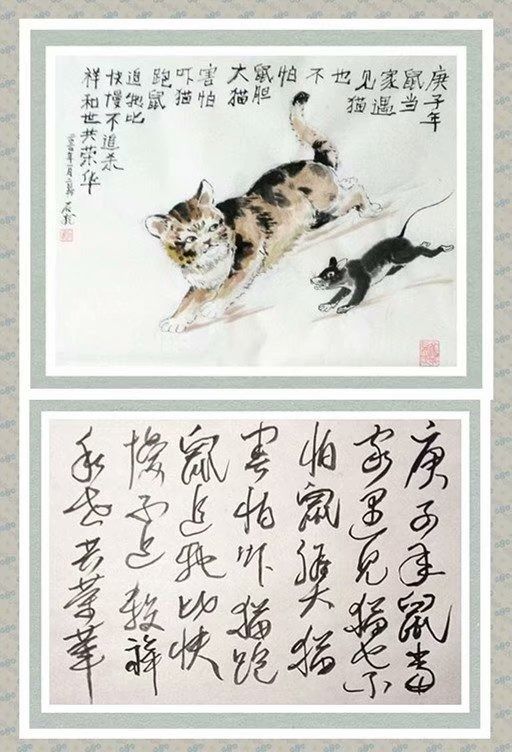 庚子年
鼠当
家遇
见猫
也
不
怕
鼠胆
大猫
害怕
吓猫
跑鼠
追牠比
快慢不追杀
祥和世共荣华
庚子年鼠当
家遇见猫也不
怕鼠膽大猫
害怕吓猫跑
鼠追牠比快
慢不追殺祥
和世共荣華